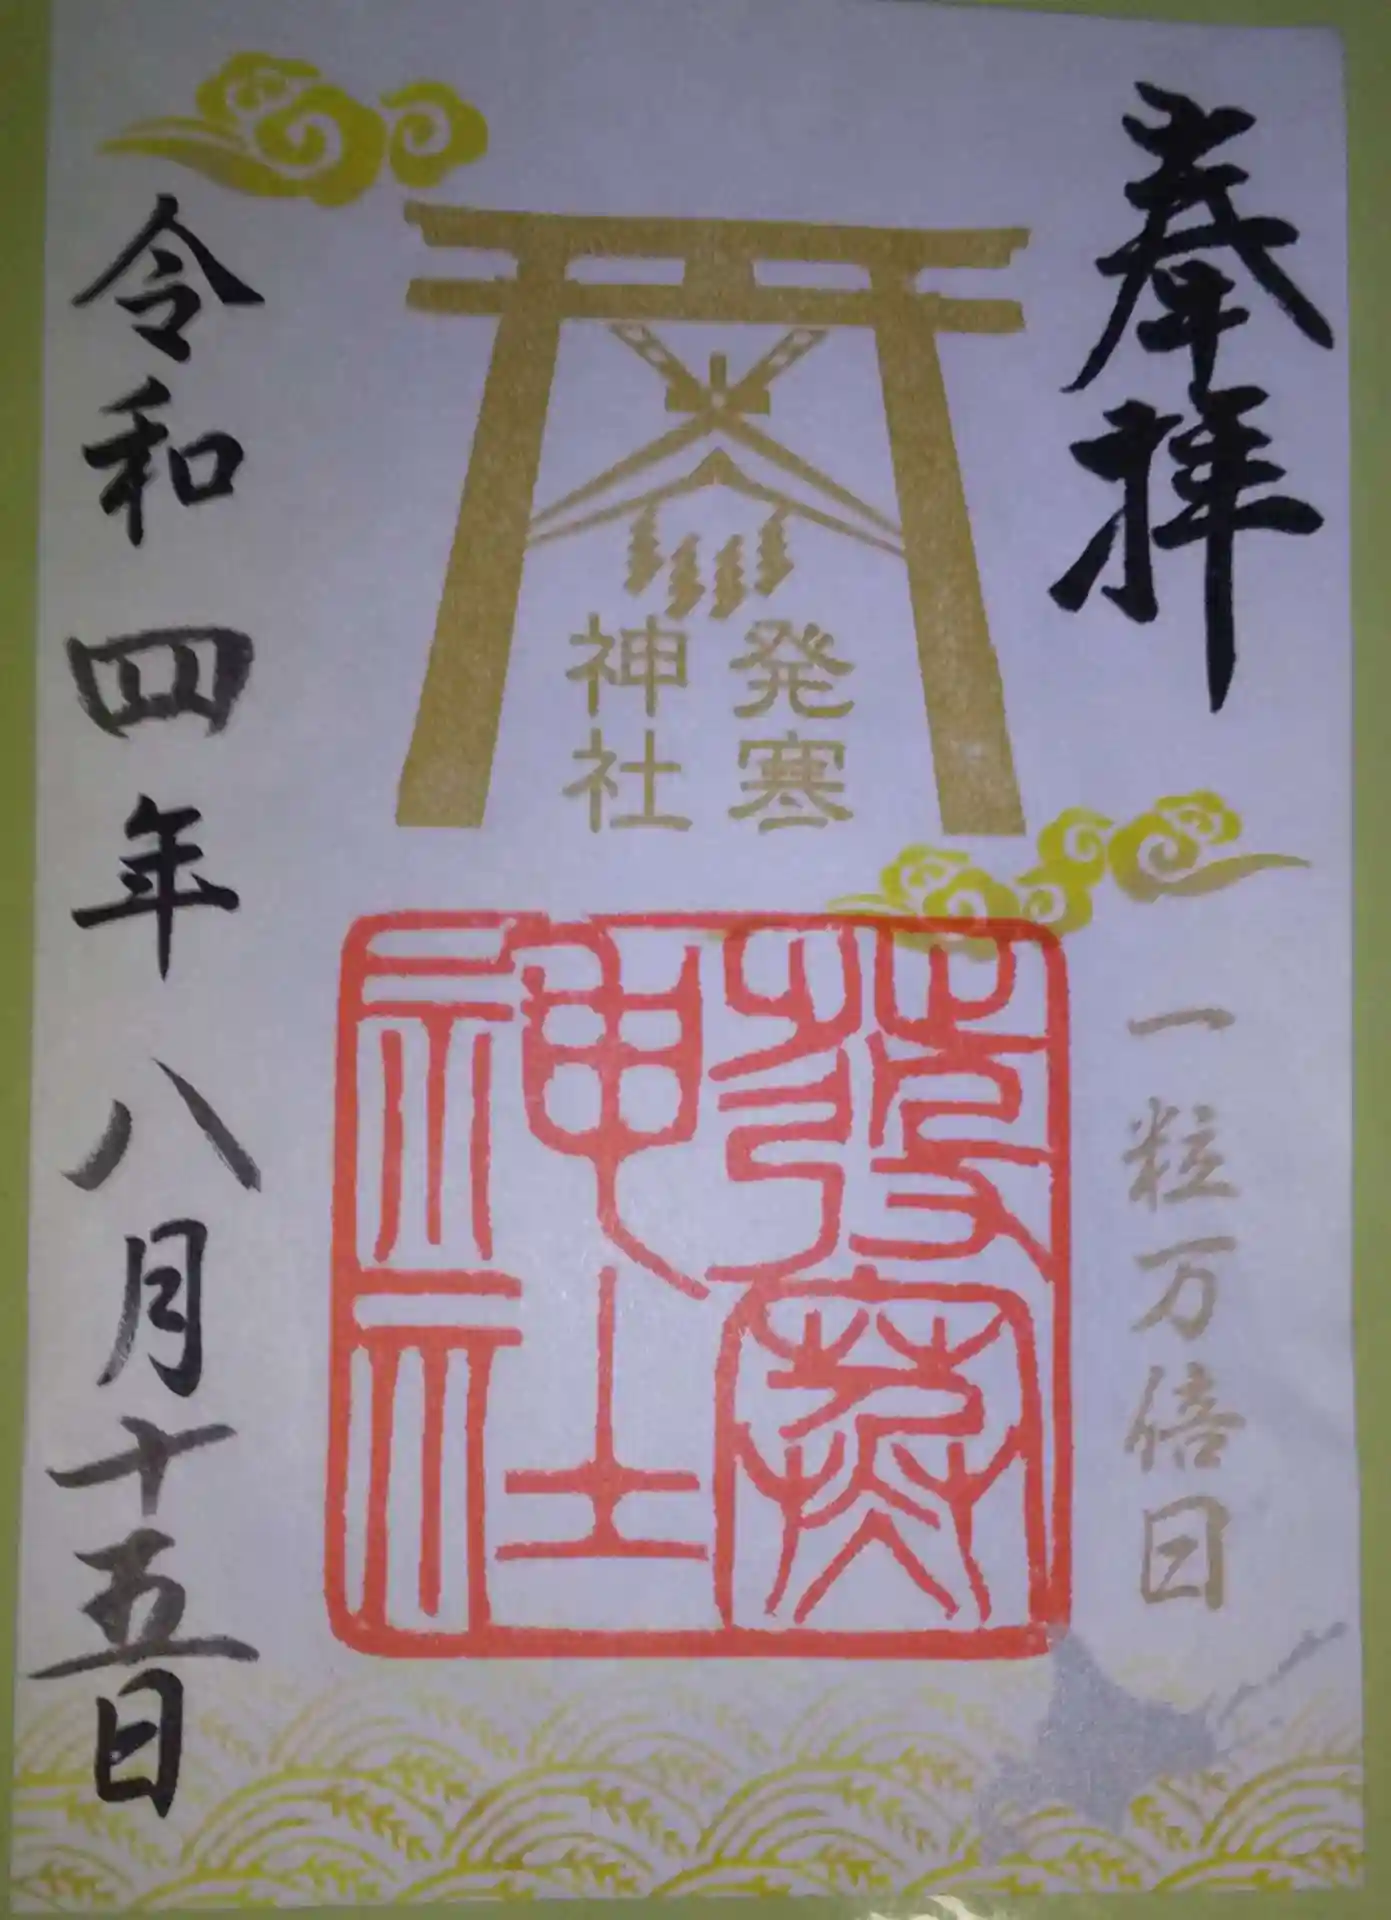 奉拝
一粒万倍日
発寒
神社
發寒
神社
令和四年八月十五日